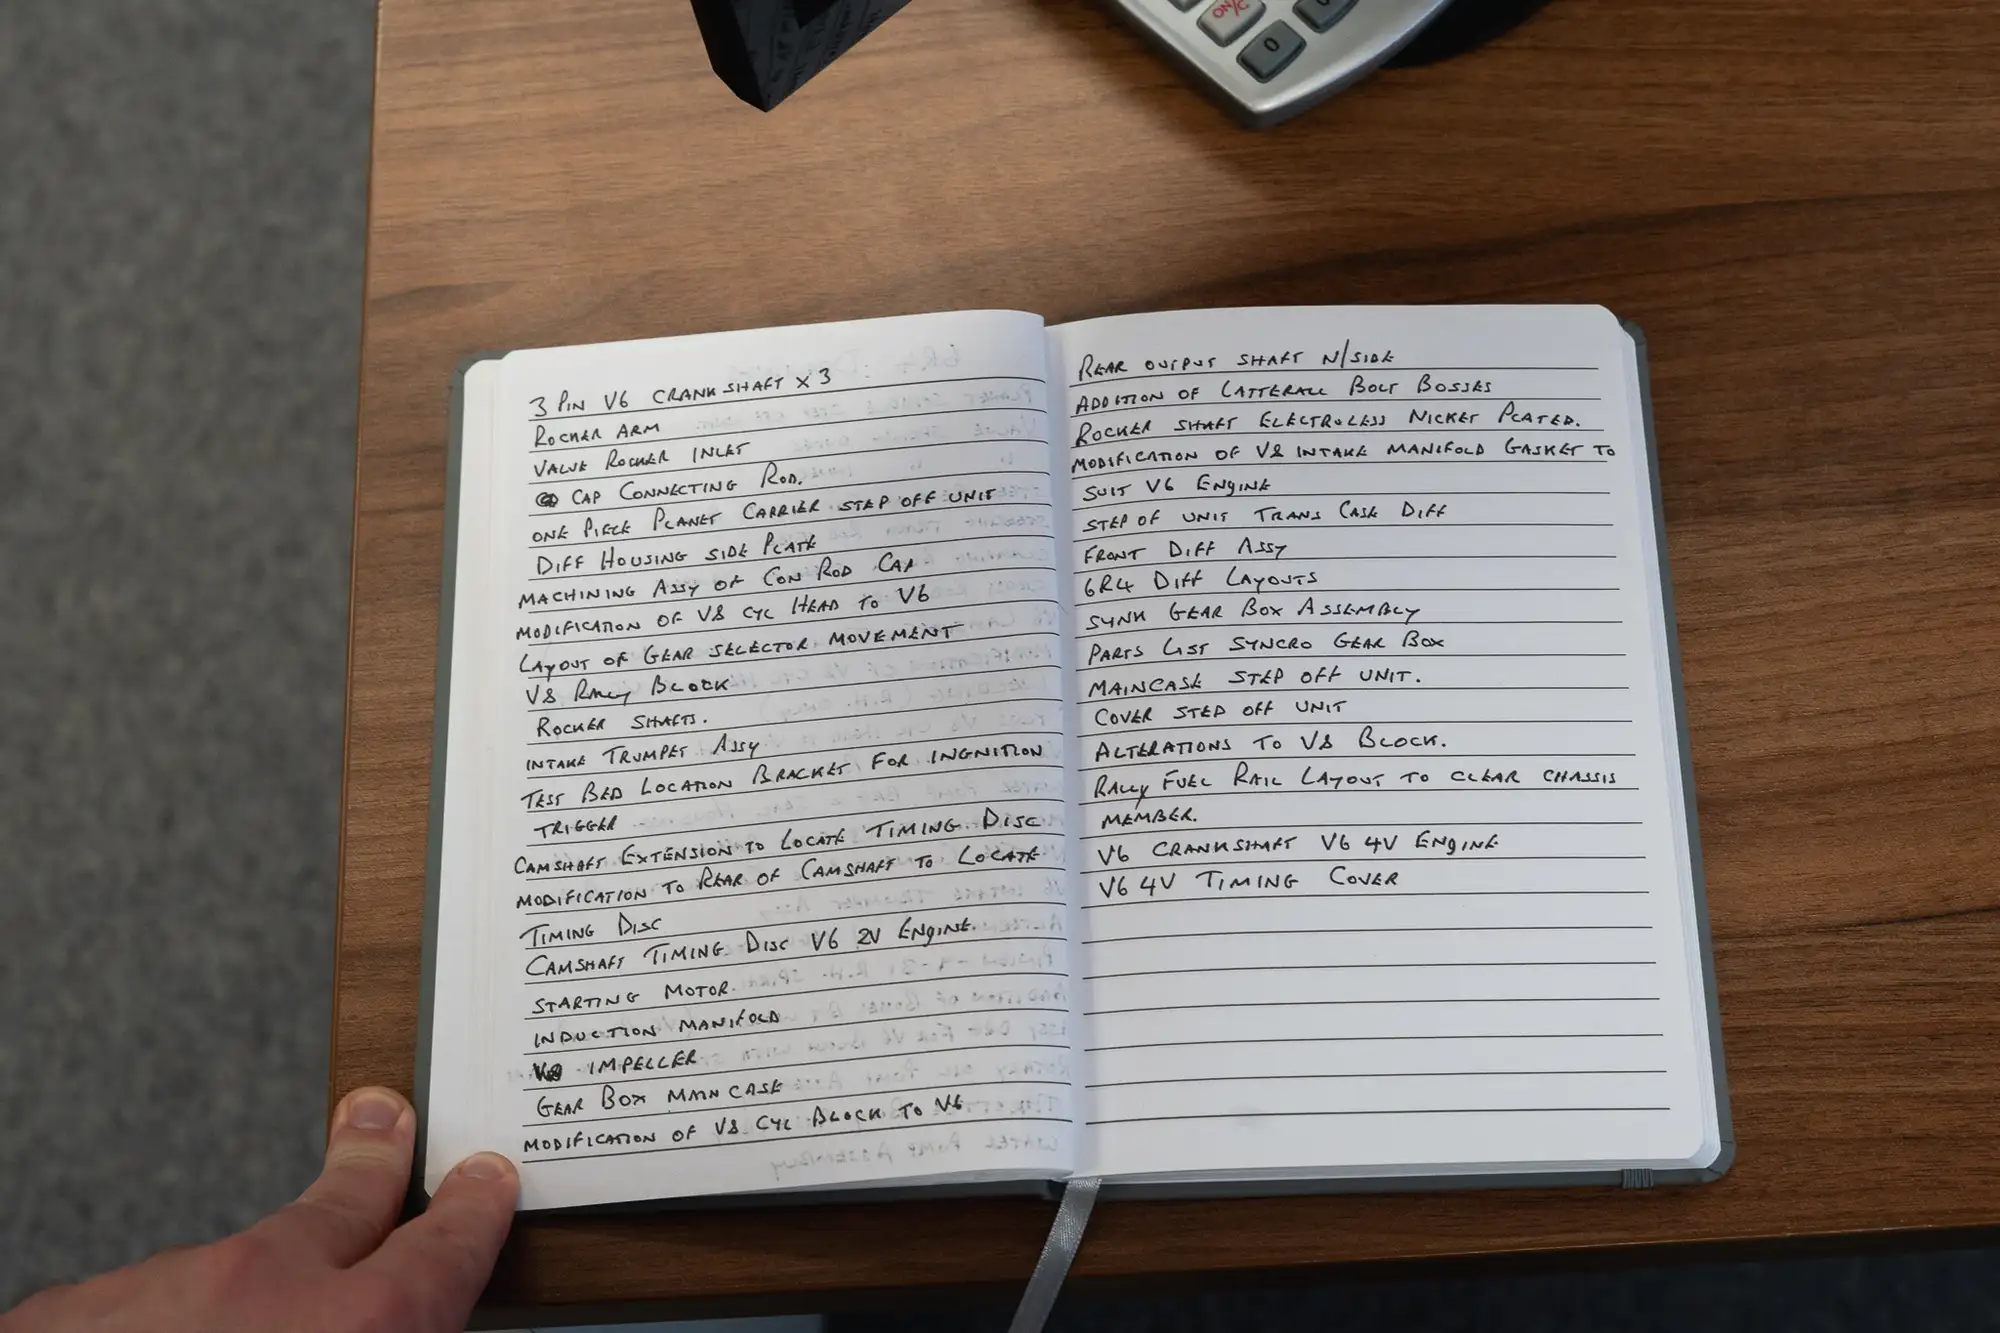 ON/C
0
3 PIN V6 CRANKSHAFT X 3
ROCKER ARM
VALVE ROCKER INLET
CAP CONNECTING ROD.
ONE PIECE PLANET CARRIER STEP OFF UNIT
DIFF HOUSING SIDE PLATE
MACHINING ASSY OF CON ROD CAP
MODIFICATION OF V8 CYL HEAD TO V6
LAYOUT OF GEAR SELECTOR MOVEMENT
V8 RALLY BLOCK
ROCKER SHAFTS.
INTAKE TRUMPET ASSY
TEST BED LOCATION BRACKET FOR INGNITION
TRIGGER
CAMSHAFT EXTENSION TO LOCATE TIMING DISC
MODIFICATION TO REAR OF CAMSHAFT TO LOCATE
TIMING DISC
CAMSHAFT TIMING DISC V6 2V ENGINE.
STARTING MOTOR.
INDUCTION MANIFOLD
IMPELLER
GEAR BOX MAIN CASE
MODIFICATION OF V8 CYL BLOCK TO V6
REAR OUTPUT SHAFT N/SIDE
ADDITION OF LATTERALL BOLT BOSSES
ROCKER SHAFT ELECTROLESS NICKET PLATED.
MODIFICATION OF V8 INTAKE MANIFOLD GASKET TO
SUIT V6 ENGINE
STEP OF UNIT TRANS CASE DIFF
FRONT DIFF ASSY
6R4 DIFF LAYOUTS
SYNK GEAR BOX ASSEMBLY
PARTS LIST SYNCRO GEAR BOX
MAINCASE STEP OFF UNIT.
COVER STEP OFF UNIT
ALTERATIONS TO V8 BLOCK.
RALLY FUEL RAIL LAYOUT TO CLEAR CHASSIS
MEMBER.
V6 CRANKSHAFT V6 4V ENGINE
V6 4V TIMING COVER